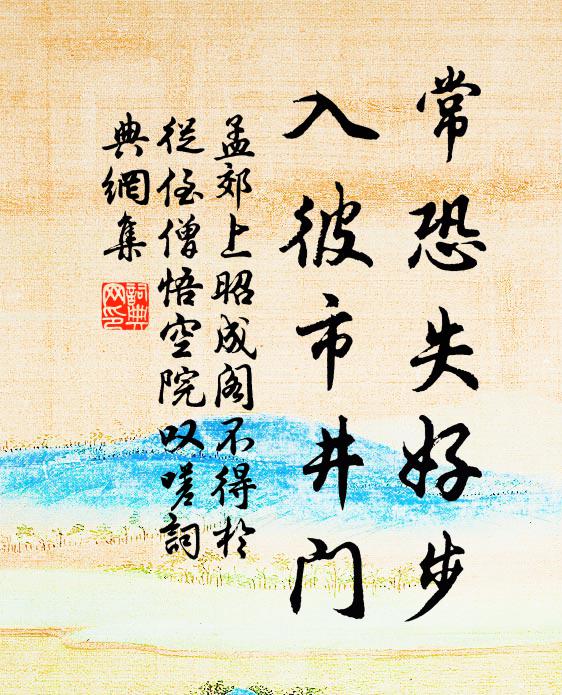 常恐失好步
入彼市井門
孟郊上昭成阁不得於
从侄僧悟空院叹嗟詞
典網集
詞典
网印